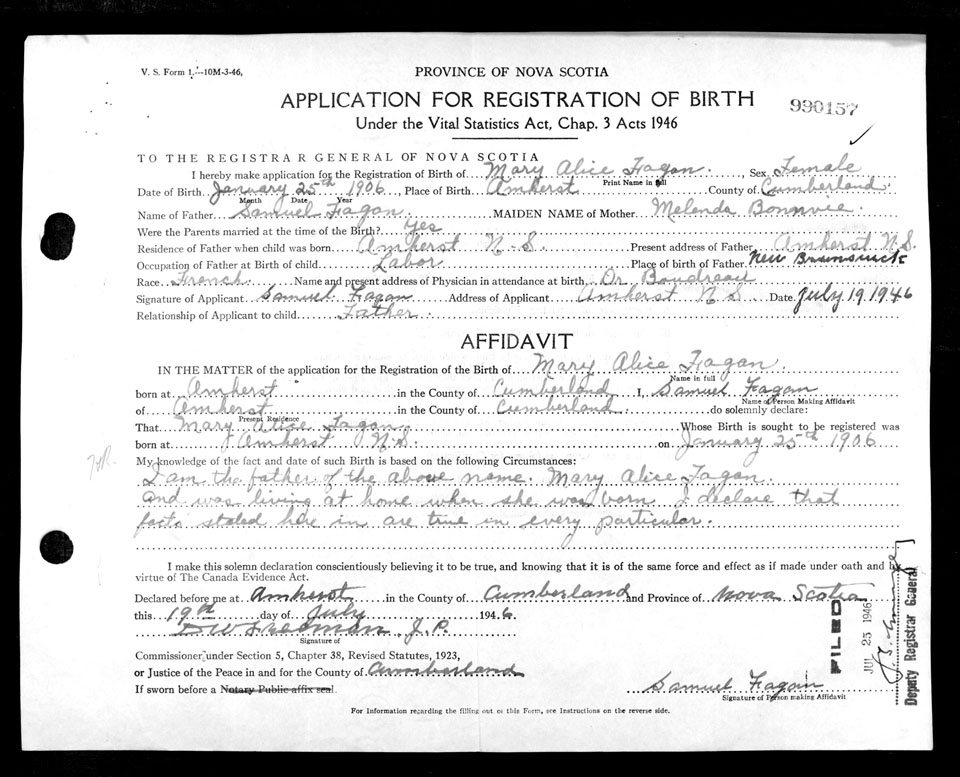 V. S. Form 1.—10M-3-46,
PROVINCE OF NOVA SCOTIA
APPLICATION FOR REGISTRATION OF BIRTH
990157
Under the Vital Statistics Act, Chap. 3 Acts 1946
TO THE REGISTRAR GENERAL OF NOVA SCOTIA
I hereby make application for the Registration of Birth of Mary Alice Fagan. Sex Female
Print Name in full
Date of Birth January 25th 1906, Place of Birth Amherst County of Cumberland.
Month Date Year
Name of Father Samuel Fagan. MAIDEN NAME of Mother Melenda Bonnvie.
Were the Parents married at the time of the Birth? Yes
Residence of Father when child was born Amherst N-S. Present address of Father Amherst N.S.
Occupation of Father at Birth of child Labor Place of birth of Father New Brunswick
Race French Name and present address of Physician in attendance at birth, Dr. Boudreau
Signature of Applicant Samuel Fagan Address of Applicant Amherst N S Date July 19.1946
Relationship of Applicant to child Father
AFFIDAVIT
IN THE MATTER of the application for the Registration of the Birth of Mary Alice Fagan.
Name in full
born at Amherst in the County of Cumberland I, Samuel Fagan
Name of Person Making Affidavit
of Amherst in the County of Cumberland. do solemnly declare:
Present Residence
That Mary Alice Fagan. Whose Birth is sought to be registered was
born at Amherst N.S. on January 25th 1906
My knowledge of the fact and date of such Birth is based on the following Circumstances:
I am the father of the above name. Mary Alice Fagan.
And was living at home when she was born. I declare that
facts stated here in are true in every particular.
I make this solemn declaration conscientiously believing it to be true, and knowing that it is of the same force and effect as if made under oath and by
virtue of The Canada Evidence Act.
Declared before me at Amherst in the County of Cumberland and Province of Nova Scotia
this 19th day of July 1946
J.P.
Signature of
Commissioner under Section 5, Chapter 38, Revised Statutes, 1923,
or Justice of the Peace in and for the County of Cumberland
If sworn before a Notary Public affix seal.
Samuel Fagan
Signature of Person making Affidavit
For Information regarding the filling out of this Form, see Instructions on the reverse side.
FILED
JUL 25 1946
Deputy Registrar General